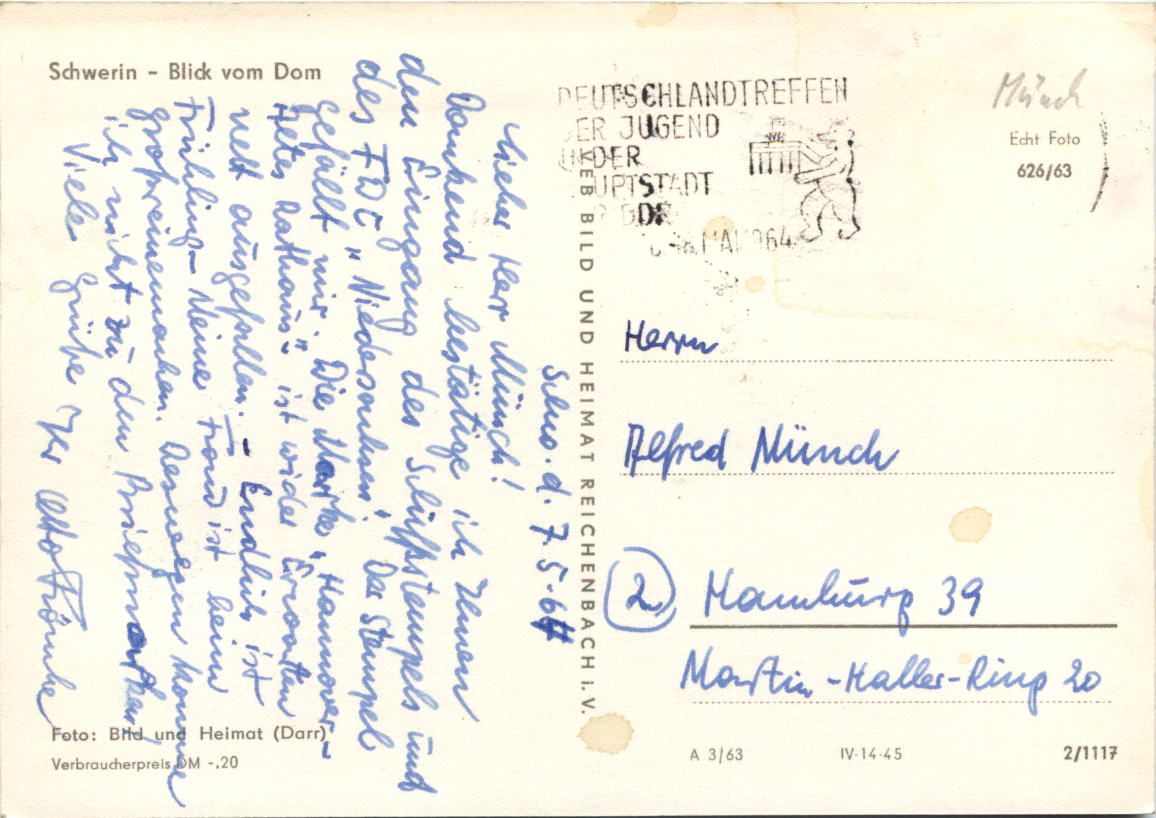 Schwerin - Blick vom Dom
Schw. d. 7.5.64
Lieber Herr Münch!
Dankend bestätige ich Ihnen
den Eingang des Schiffsstempels und
des FDC "Niedersachsen". Der Stempel
gefällt mir. Die Marke "Hannover-
Altes Rathaus" ist wider Erwarten
nett ausgefallen. - Endlich ist
Frühling - Meine Frau ist beim
Großreinemachen. Deswegen komme
ich nicht zu den Briefmarken.
Viele Grüße Ihr Otto
Foto: Bild und Heimat (Darr)
Verbraucherpreis DM -.20
VEB BILD UND HEIMAT REICHENBACH i. V.
DEUTSCHLANDTREFFEN
DER JUGEND
IN DER
HAUPTSTADT
DDR
MAI 1964
Münch
Echt Foto
626/63
Herrn
Alfred Münch
2 Hamburg 39
Martin-Haller-Ring 20
A 3/63 IV-14-45 2/1117